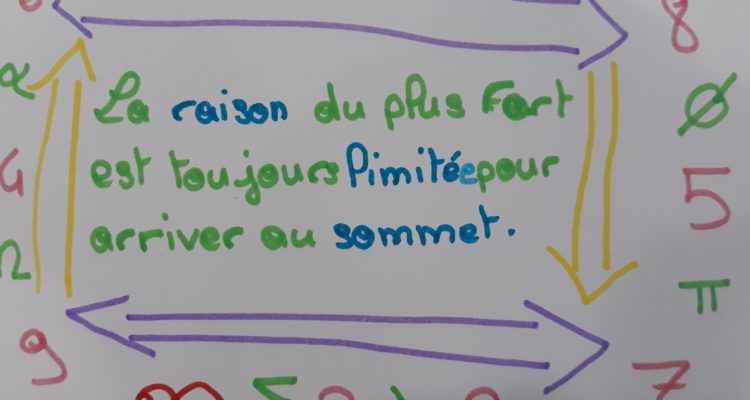 8
α La raison du plus Fort ø
4 est toujours limitée pour 5
arriver au sommet.
π
9 7